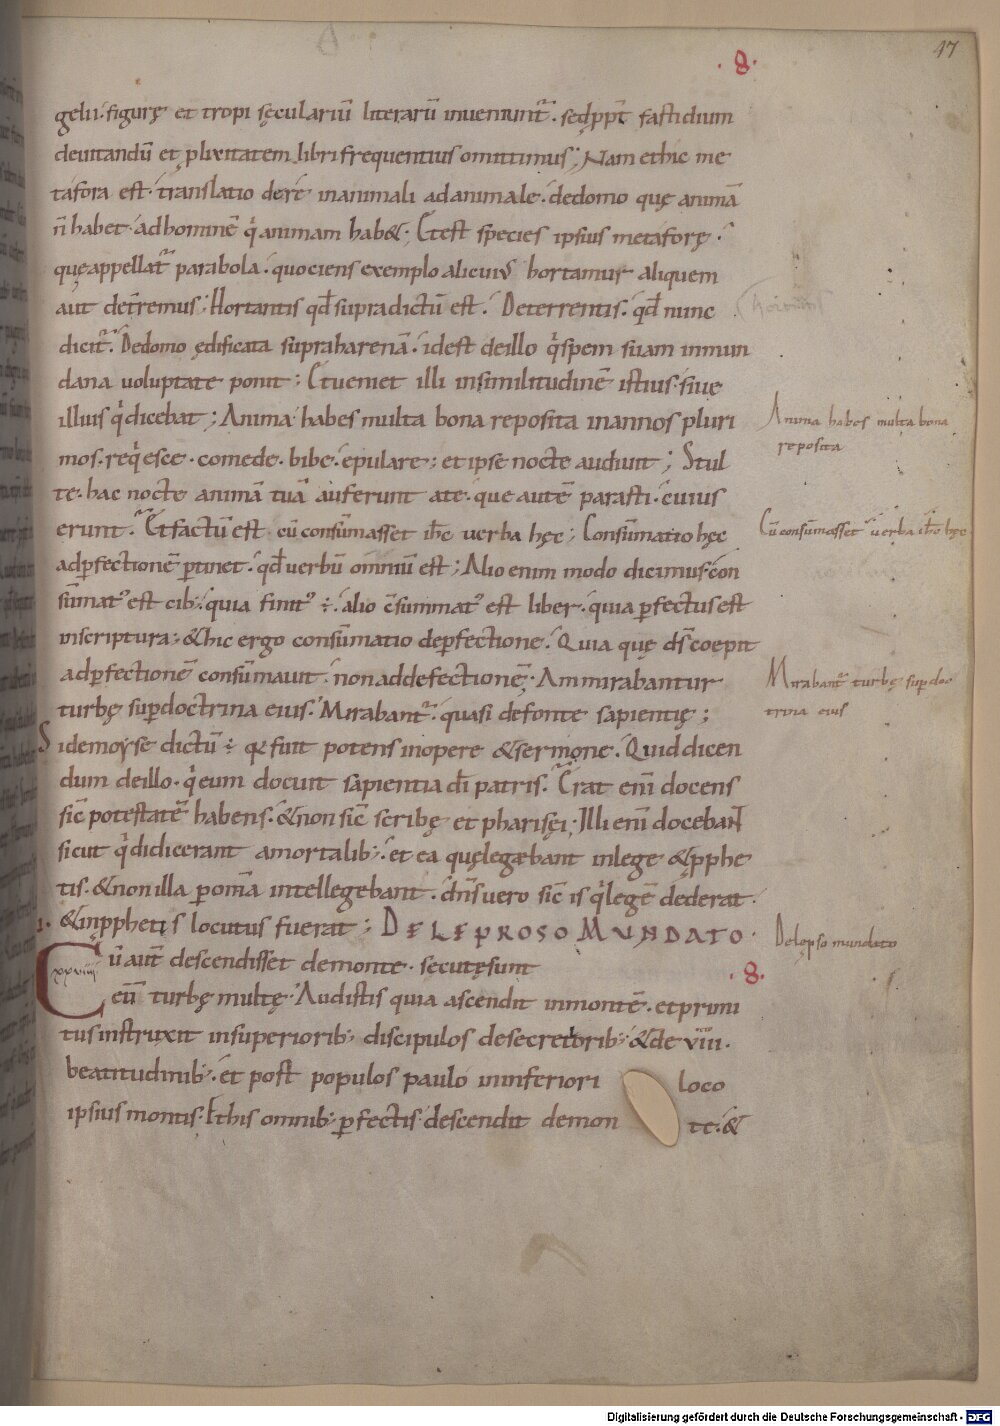 47
.8.
gelii. figurę et tropi sęculariū literarū inueniunt̄. sed ꝓpt̄ fastidium
deuitandū et plixitatem libri frequentius omittimus; Nam et hic me
tafora est. translatio de re inanimali ad animale. de domo quę animā
n̄ habet. ad hominē qi animam hab&; Et est species ipsius metaforę.
quę appellat̄ parabola. quociens exemplo alicuius hortamur aliquem
aut det̄remus; Hortantis qd̄ supra dictū est. Deterrentis. qd̄ nunc
dicit̄. De domo ędificata supra harenā. id est de illo qi spem suam in mun
dana uoluptate ponit; Et ueniet illi in similitudinē istius. siue
illius qi dicebat; Anima habes multa bona reposita in annos pluri
mos. reqiesce. comede. bibe. epulare; et ipse nocte audiuit; Stul
te. hac nocte animā tuā auferunt a te. que autē parasti. cuius
erunt. Et factū est cū consūmasset ihc uerba hęc; Consūmatio hęc
ad ꝑfectionē ꝑtinet. qd̄ uerbū omniū est; Alio enim modo dicimus. con
sūmat᾽ est cib;. quia finit᾽ ÷. alio c̄summat᾽ est liber. quia ꝑfectus est
in scriptura; & hic ergo consūmatio de ꝑfectione. Quia quę ds̄ coepit
ad ꝑfectionē consūmauit. non ad defectionē. Ammirabantur
turbę sup doctrina eius. Mirabant̄. quasi de fonte sapientię;
Si de moyse dictū ÷ qa fuit potens in opere & sermone. Quid dicen
dum de illo. qi eum docuit sapientia di patris. Erat enī docens
sic̄ potestatē habens. & non sic̄ scribę et pharisęi; Illi enī docebant
sicut qi didicerant a mortalib;. et ea quę legebant in lege & ꝓphe
tis. & non illa ꝑ omīa intellegebant. dn̄s uero sic̄ is qi legē dederat.
& in ꝓphetis locutus fuerat; DE LEPROSO MUNDATO
xxviiii
Cū aut̄ descendisset de monte. secutę sunt
.8.
eū turbę multę. Audistis quia ascendit in montē. et primi
tus instruxit in superiorib; discipulos de secretorib; & de viii.
beatitudinib;. et post populos paulo in inferiori loco
ipsius montis. Et his omnib; ꝑfectis descendit de mon te. &
Anima habes multa bona
reposita
Cū consūmasset uerba ihc hęc
Mirabant̄ turbę sup doc
trina eius
De lepso mundato
Digitalisierung gefördert durch die Deutsche Forschungsgemeinschaft - DFG